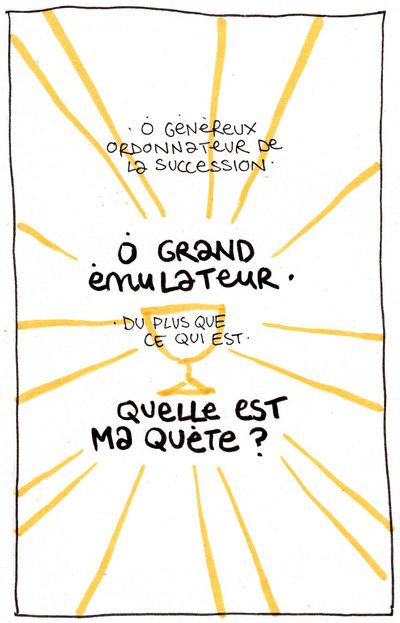 · Ô GÉNÉREUX
ORDONNATEUR DE
LA SUCCESSION ·
Ô GRAND
ÉMULATEUR ·
· DU PLUS QUE
CE QUI EST ·
QUELLE EST
MA QUÊTE ?